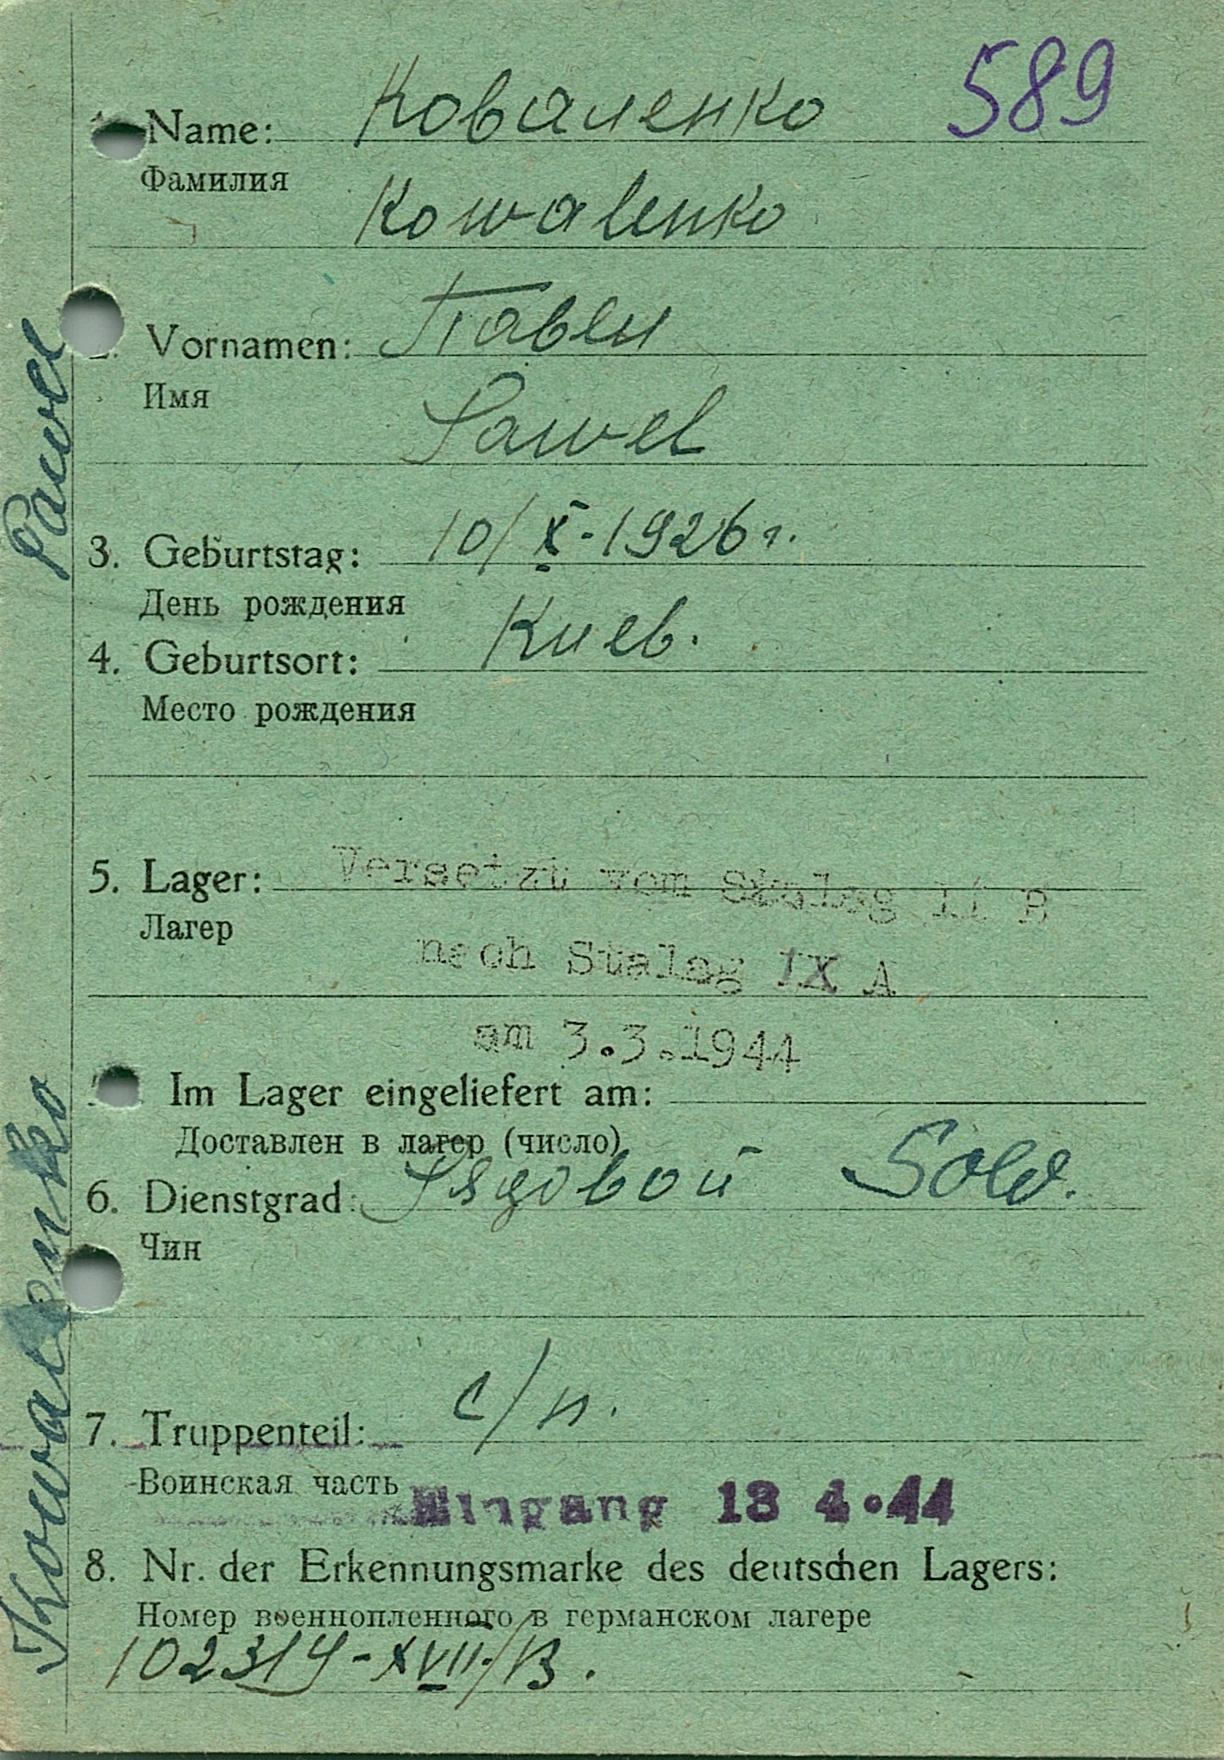 589
Name: Коваленко
Фамилия
Kowalenko
Vornamen: Павел
Имя
Pawel
3. Geburtstag: 10/X-1926 г.
День рождения
4. Geburtsort: Киев.
Место рождения
5. Lager: Versetzt vom Stalag II B
Лагер
nach Stalag IX A
am 3.3.1944
Im Lager eingeliefert am:
Доставлен в лагер (число)
6. Dienstgrad: Рядовой Sold.
Чин
7. Truppenteil: с/п.
Воинская часть
Eingang 13 4.44
8. Nr. der Erkennungsmarke des deutschen Lagers:
Номер военнопленного в германском лагере
102314-XVII/B.
Kowalenko Pawel